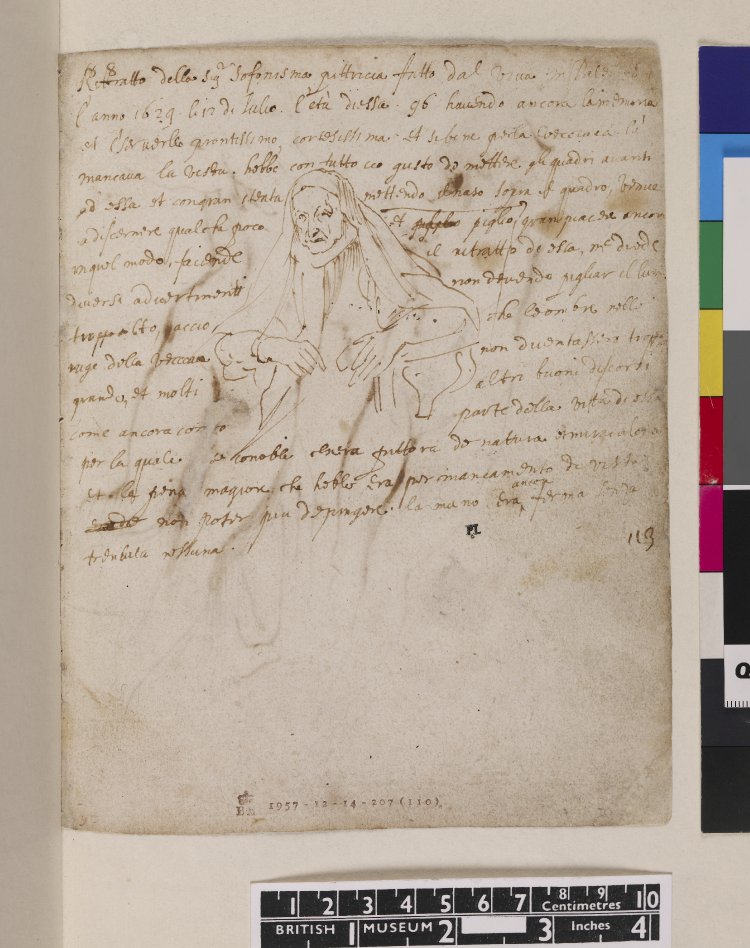 Rittratto della Sig.ra Sofonisma pittricia fatto dal vivo in
l'anno 1629 li 12 di Julio. l'età di essa. 96 havendo ancora la memoria
et il serverlo prontissimo, cortesissima et si bene per la vecciaia li
mancava la vista. hebbe con tutto cio gusto de metter gli quadri avanti
ad essa et con gran stenta mettendo il naso sopra il quadro, venne
a discernere qualche poco et piglio gran piacer ancora
in quel modo, facendo il ritratto de essa, me diede
diversi advertimenti non devendo pigliar il lume
troppo alto, accio che le ombre nelle
ruge della vecciaia non diventassero troppo
grande, et molti altri buoni discorsi
come ancora conto parte della vita di essa
per la quale se conobbe chera pittora de natura et miraculosa
et la pena magiore che hebbe era per mancamento di vista
non poter piu depinger. la mano era ancora ferma senza
trembula nessuna.
113
PL
BM
1957-12-14-207(110)
1 2 3 4 5 6 7 8 9 10
Centimetres
BRITISH 1 MUSEUM 2 3 Inches 4